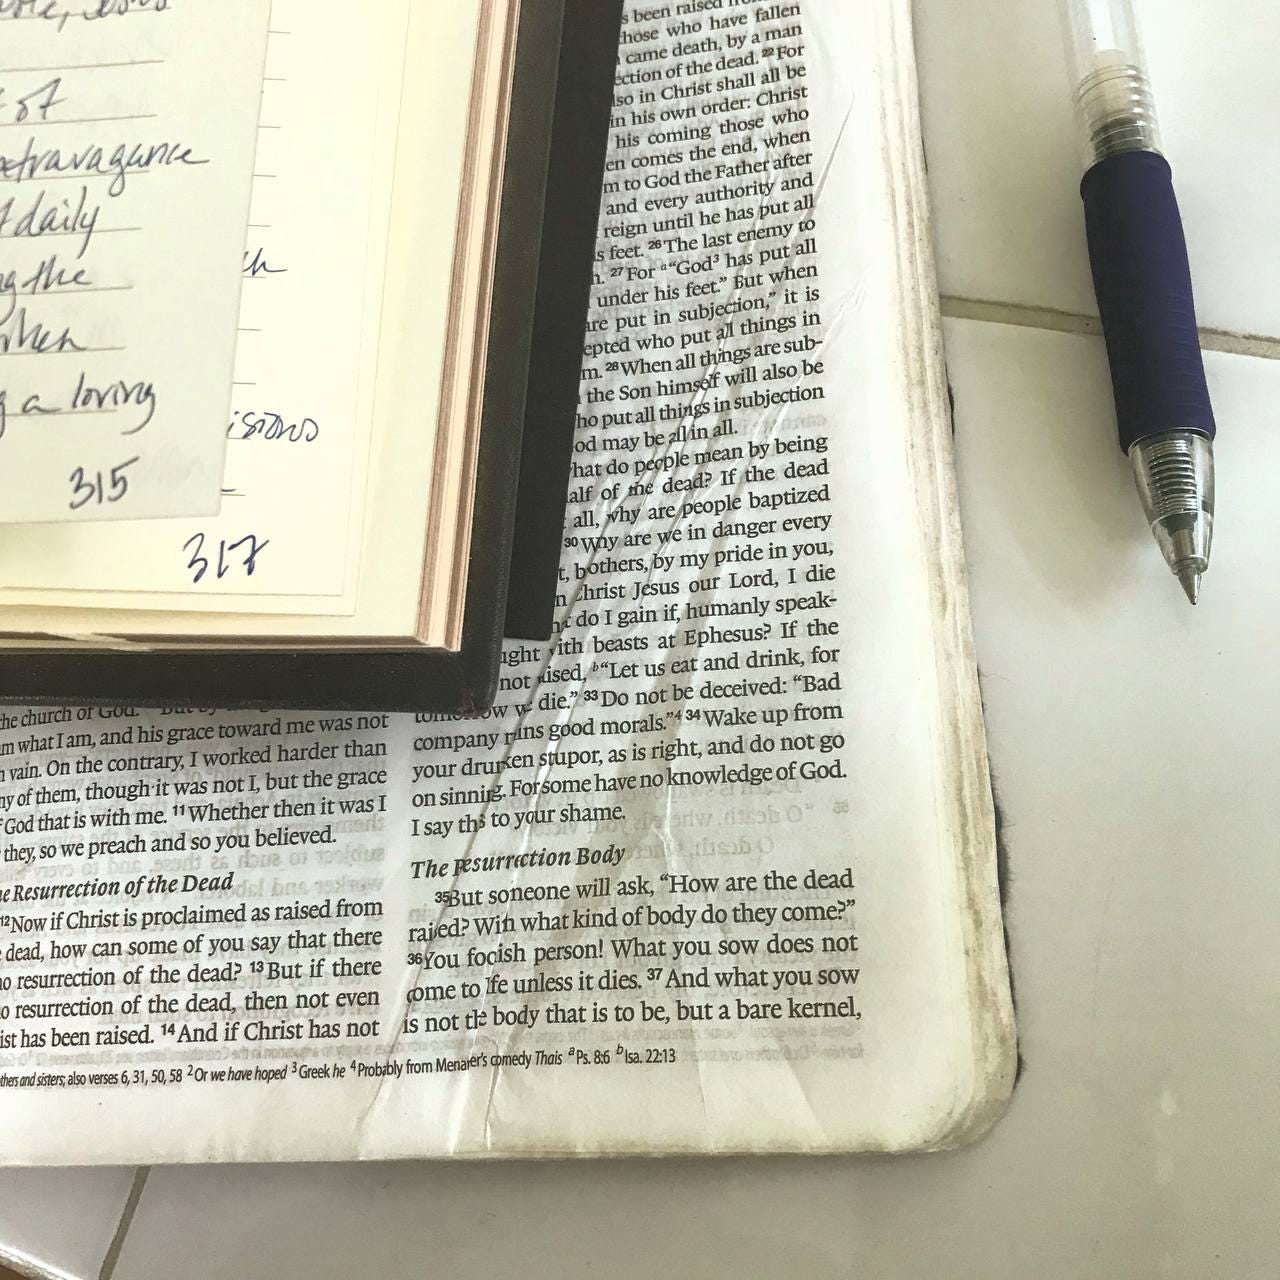 of
extravagance
daily
the
a loving
315
317
s been raised
hose who have fallen
came death, by a man
ection of the dead. 22For
lso in Christ shall all be
in his own order: Christ
his coming those who
en comes the end, when
m to God the Father after
and every authority and
reign until he has put all
s feet. 26The last enemy to
27For a“God3 has put all
under his feet.” But when
are put in subjection,” it is
epted who put all things in
m. 28When all things are sub-
the Son himself will also be
ho put all things in subjection
od may be all in all.
hat do people mean by being
alf of the dead? If the dead
all, why are people baptized
30Why are we in danger every
t, brothers, by my pride in you,
n Christ Jesus our Lord, I die
do I gain if, humanly speak-
ught with beasts at Ephesus? If the
not raised, b“Let us eat and drink, for
tomorrow we die.” 33Do not be deceived: “Bad
company ruins good morals.”4 34Wake up from
your drunken stupor, as is right, and do not go
on sinning. For some have no knowledge of God.
I say this to your shame.
The Resurrection Body
35But someone will ask, “How are the dead
raised? With what kind of body do they come?”
36You foolish person! What you sow does not
come to life unless it dies. 37And what you sow
is not the body that is to be, but a bare kernel,
the church of God. But by
m what I am, and his grace toward me was not
n vain. On the contrary, I worked harder than
ny of them, though it was not I, but the grace
God that is with me. 11Whether then it was I
they, so we preach and so you believed.
e Resurrection of the Dead
12Now if Christ is proclaimed as raised from
dead, how can some of you say that there
no resurrection of the dead? 13But if there
o resurrection of the dead, then not even
ist has been raised. 14And if Christ has not
thers and sisters; also verses 6, 31, 50, 58 2Or we have hoped 3Greek he 4Probably from Menander's comedy Thais aPs. 8:6 bIsa. 22:13